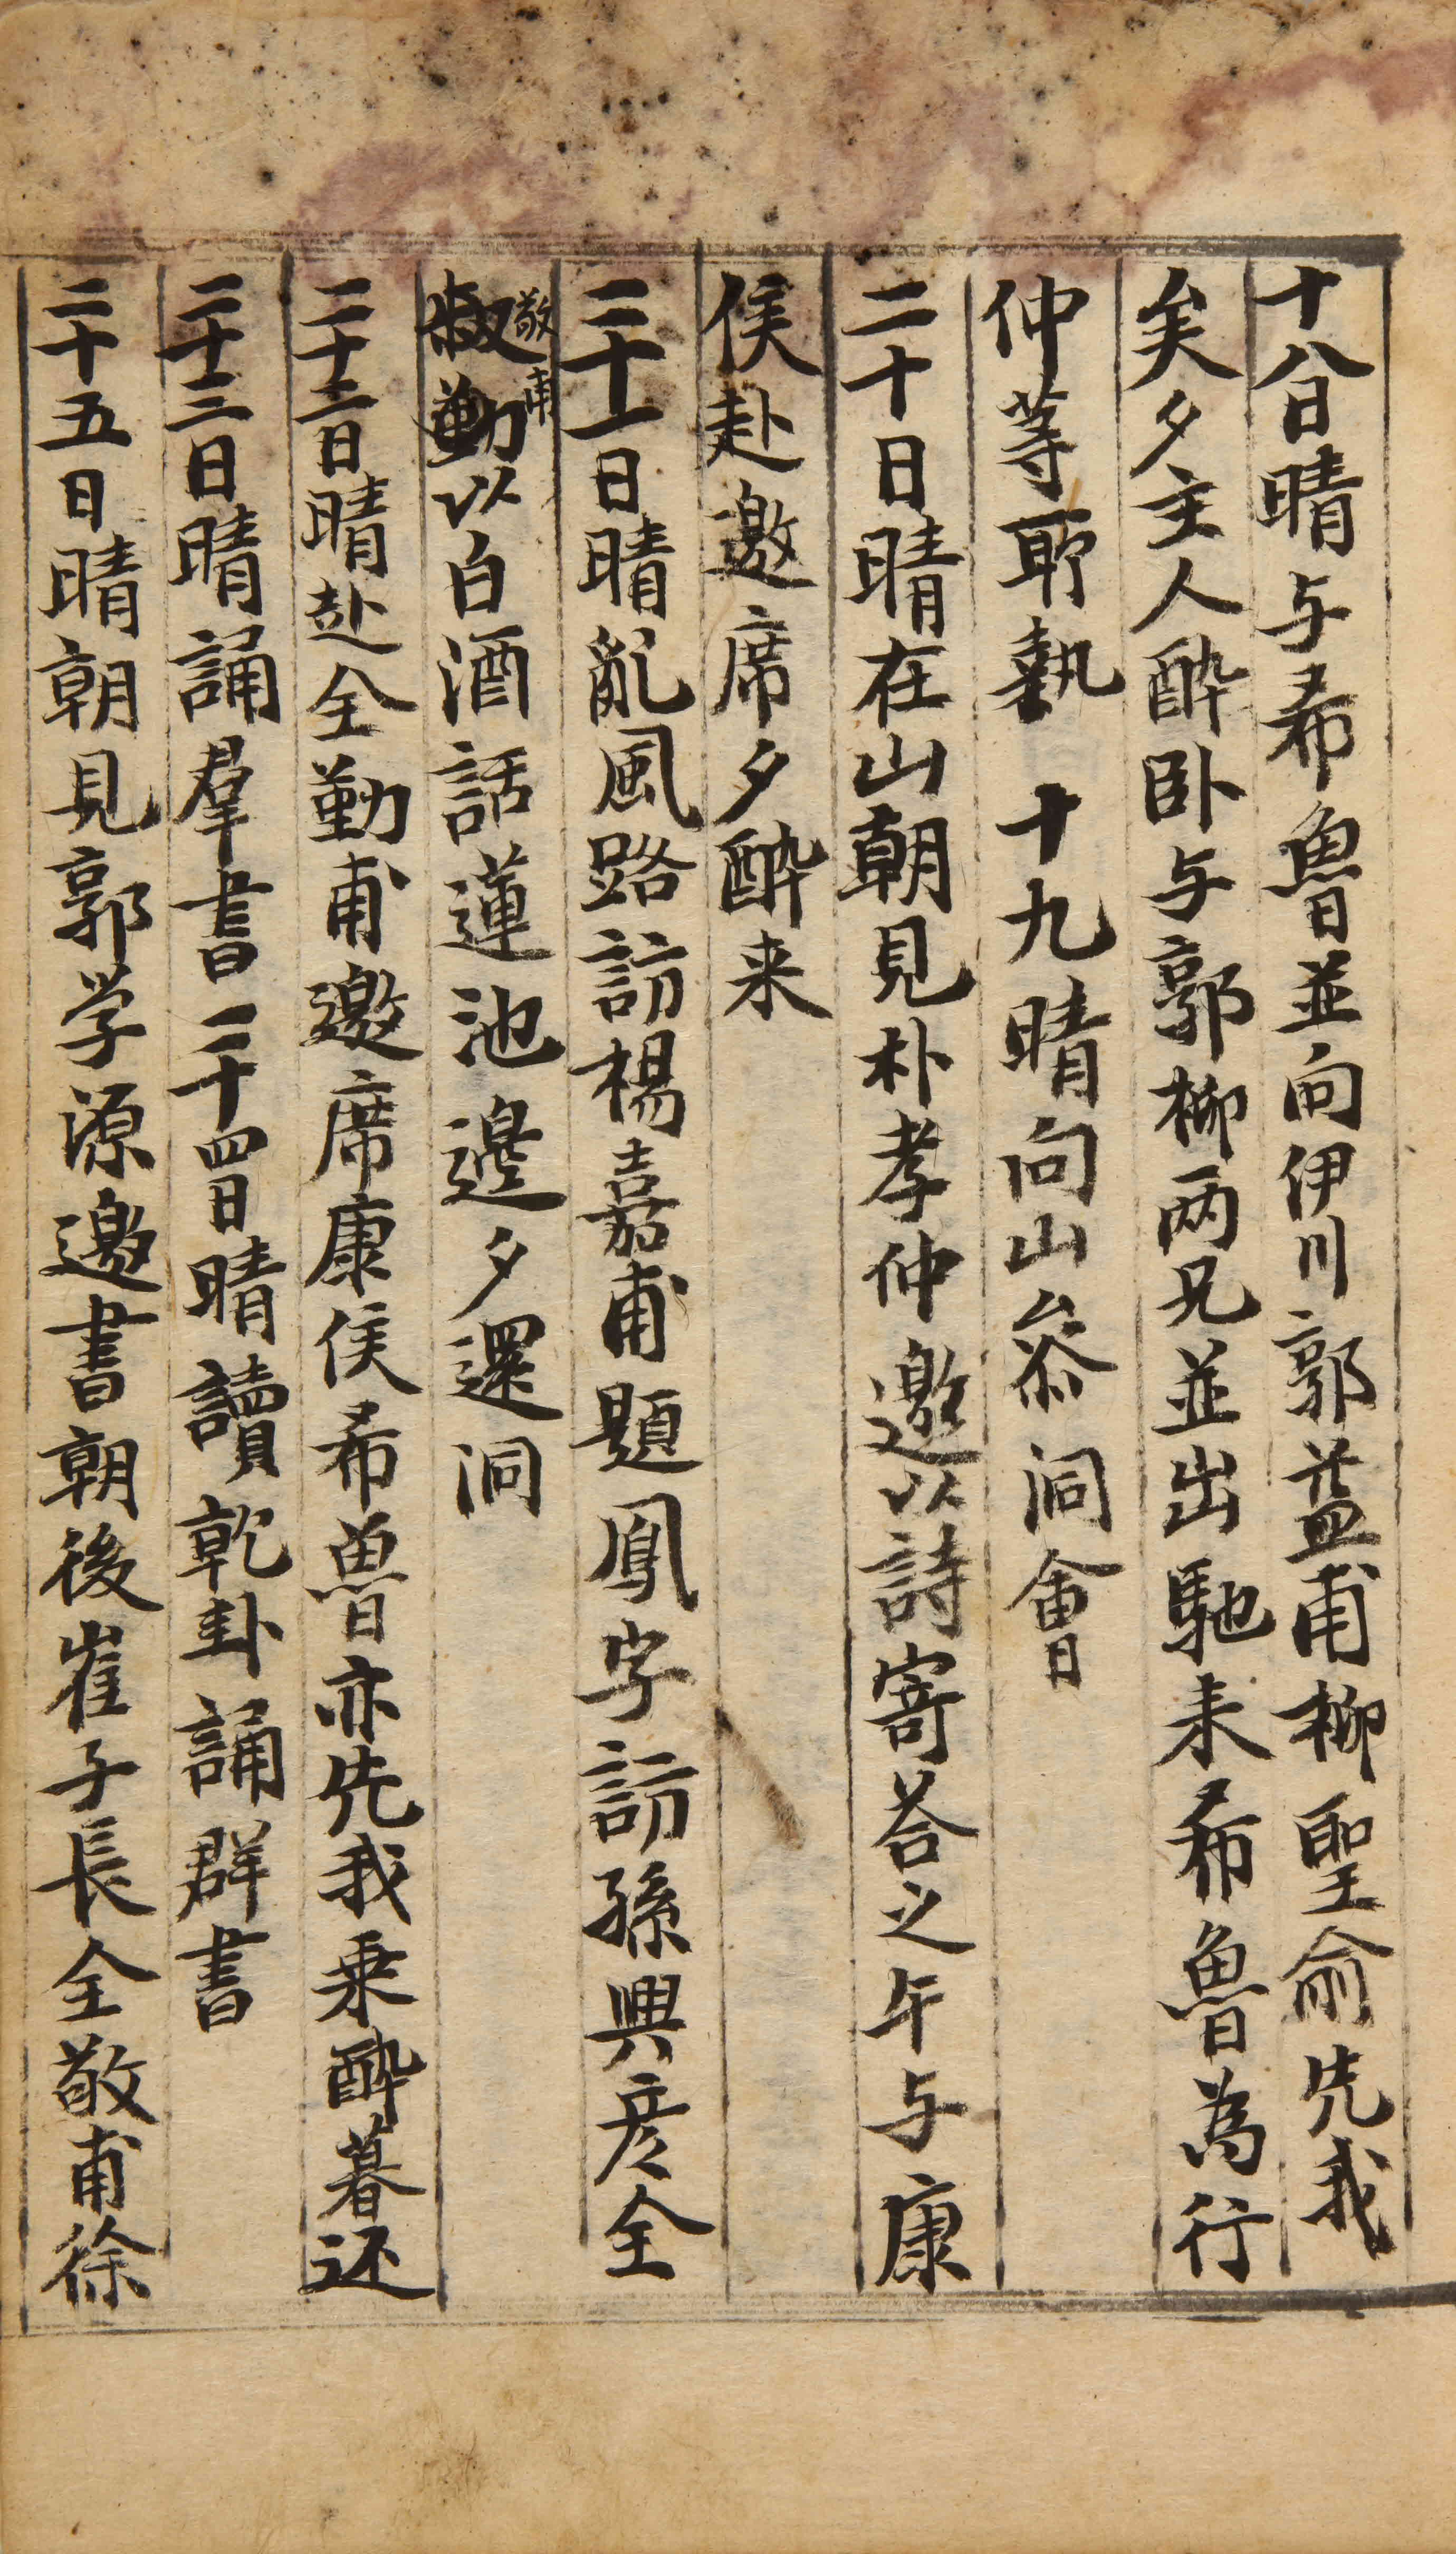 十八日晴与希魯並向伊川郭益甫柳聖俞先我
矣夕主人醉卧与郭柳两兄並出馳来希魯為行
仲等所執 十九晴向山叅洞會
二十日晴在山朝見朴孝仲邀以詩寄荅之午与康
侯赴邀席夕酔来
二十一日晴亂風路訪楊嘉甫題鳳字訪孫興彦全
敬甫以白酒話蓮池邊夕還洞
二十二日晴赴全勤甫邀席康侯希魯亦先我乘酔暮还
二十三日晴誦羣書二十四日晴讀乾卦誦群書
二十五日晴朝見郭学源邀書朝後崔子長全敬甫徐